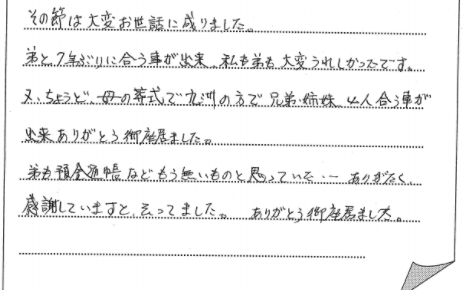 その節は大変お世話に成りました。
弟と7年ぶりに合う事が出来、私も弟も大変うれしかったです。
又、ちょうど、母の葬式で九洲の方で兄弟姉妹、4人合う事が
出来ありがとう御座居ました。
弟も預金通帳などもう無いものと思っていた、… ありがたく
感謝していますと、云ってました。 ありがとう御座居ました。